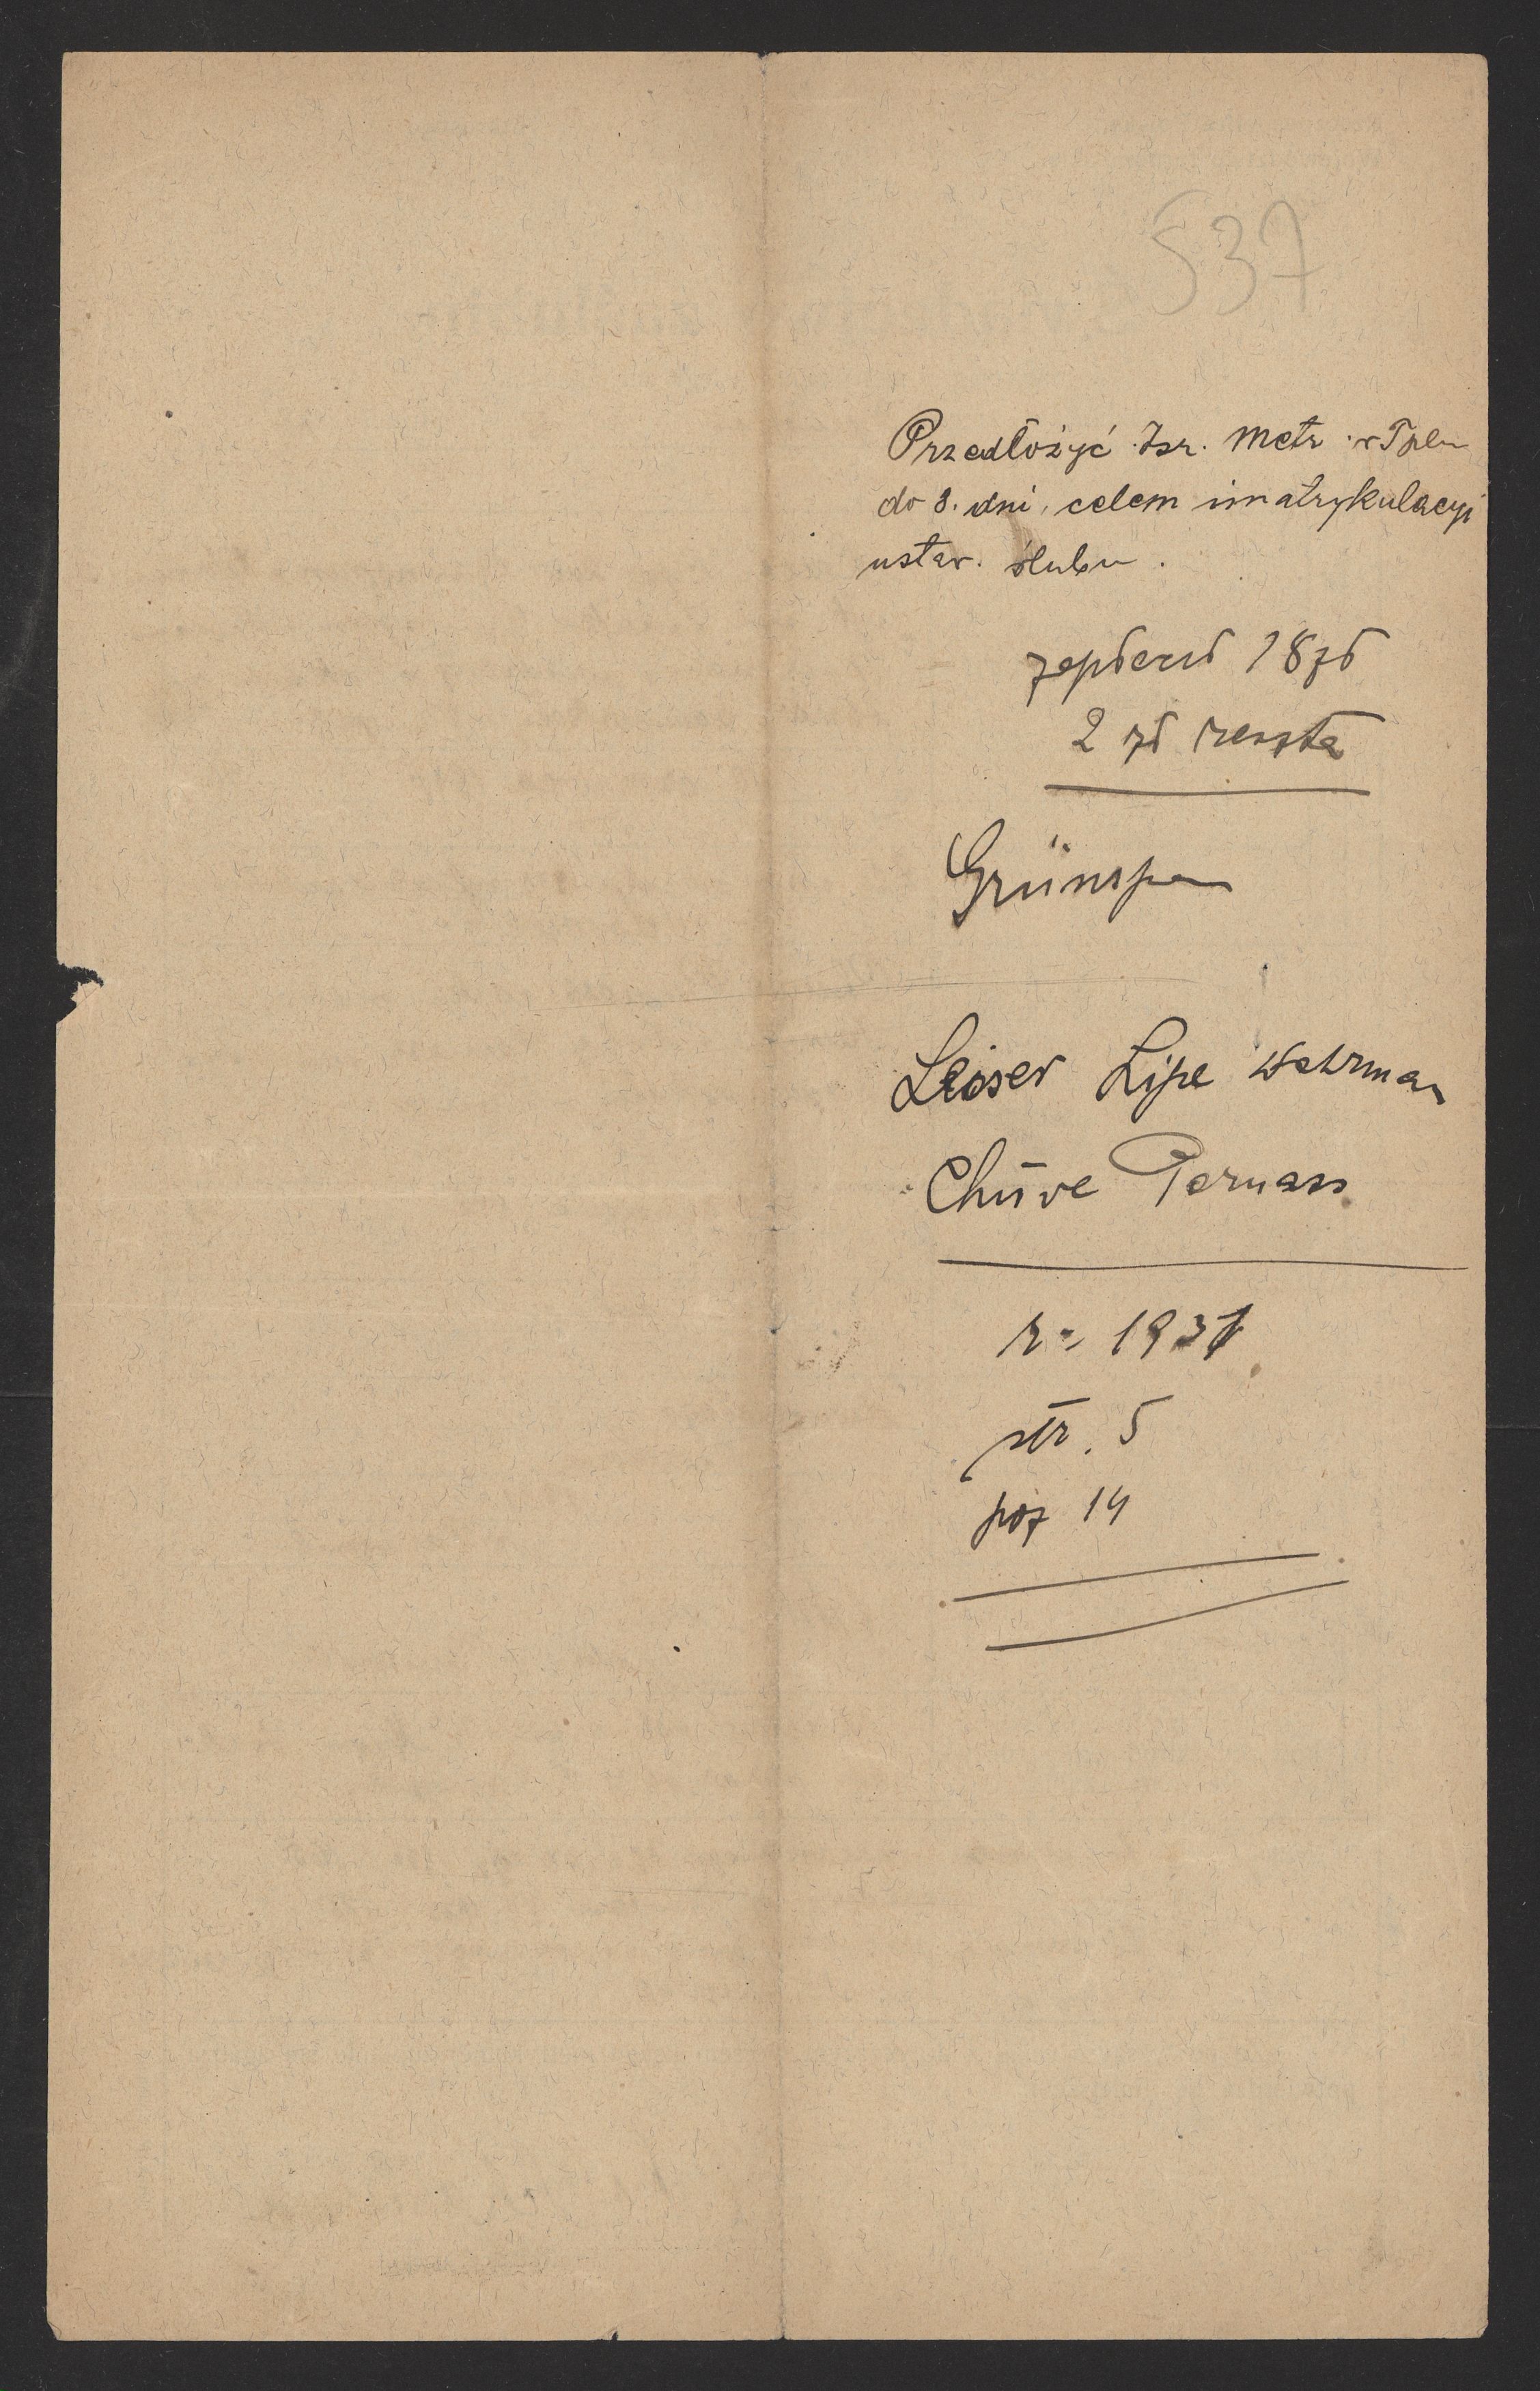 537
Przedłożyć Izr. Metr. w Tple
do 8. dni, celem imatrykulacyi
ustaw. ślubu.
zapłacił 18 zł
2 zł reszta
Grünspan
Leiser Lipe Wahrman
Chiwe Parnass
r = 1931
str. 5
poz 14